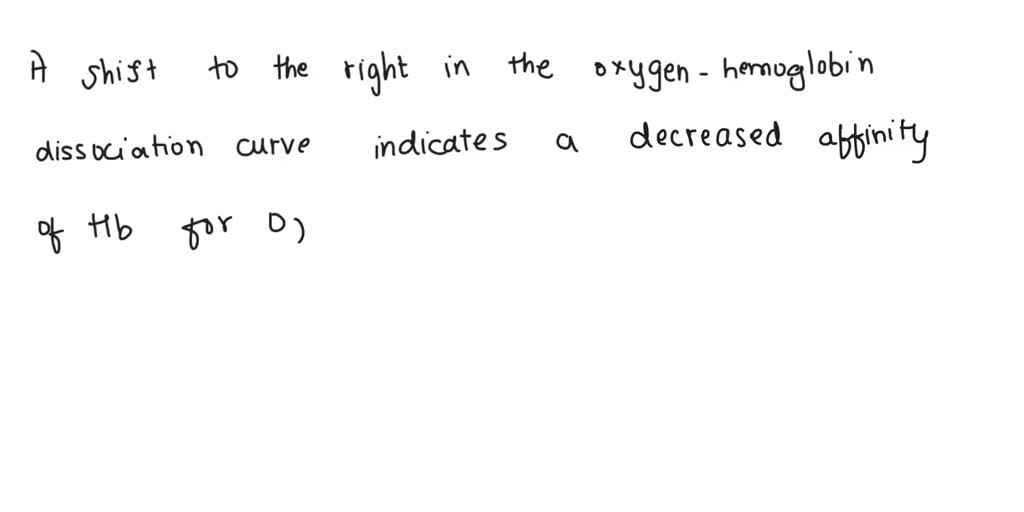 A shift to the right in the oxygen - hemoglobin
dissociation curve indicates a decreased affinity
of Hb for O,